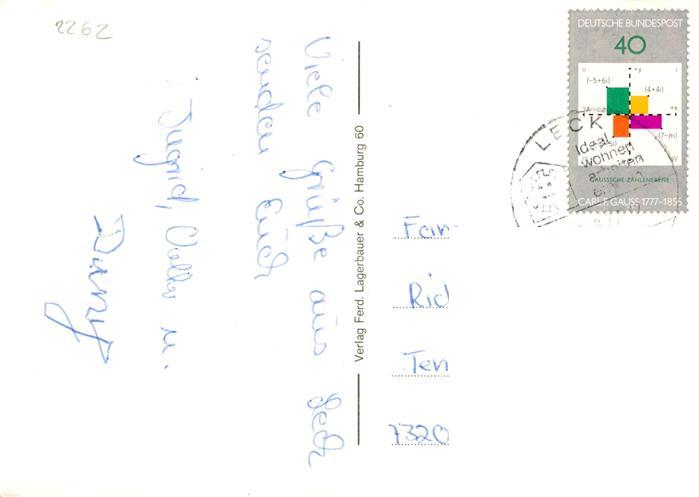 2262
Viele Grüße aus Leck
senden Euch
Ingrid, Volker u.
Verlag Ferd. Lagerbauer & Co. Hamburg 60
Fam
Rid
Ten
7320
DEUTSCHE BUNDESPOST
40
(-5+6i)
+y
(4+4i)
+x
(7-
GAUSSSCHE ZAHLENEBENE
CARL F. GAUSS 1777-1855
LECK
Ideal
wohnen